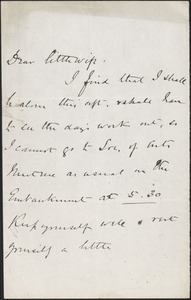 Dear little wife.
I find that I shall
be alone this aft. & shall have
to see the day's work out, so
I cannot go to Soc. of Arts
Meet me as usual on the
Embankment at 5.30
Keep yourself well & rest
yourself a little